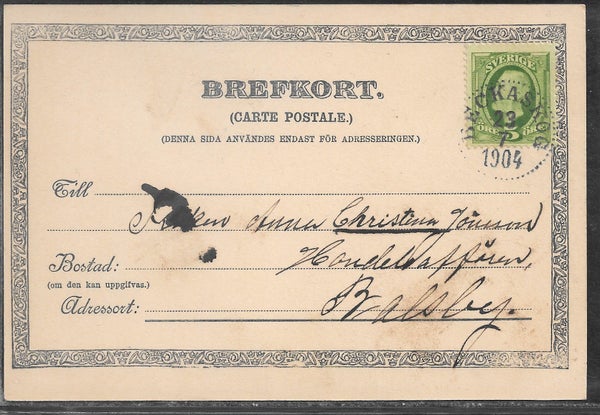 BREFKORT.
(CARTE POSTALE.)
(DENNA SIDA ANVÄNDES ENDAST FÖR ADRESSERINGEN.)
SVERIGE
ÖRE 5 ÖRE
23
7
1904
Till
Fröken Anna Christina Jönsson
Bostad: Handelsaffären,
(om den kan uppgifvas.)
Adressort: Balsby.